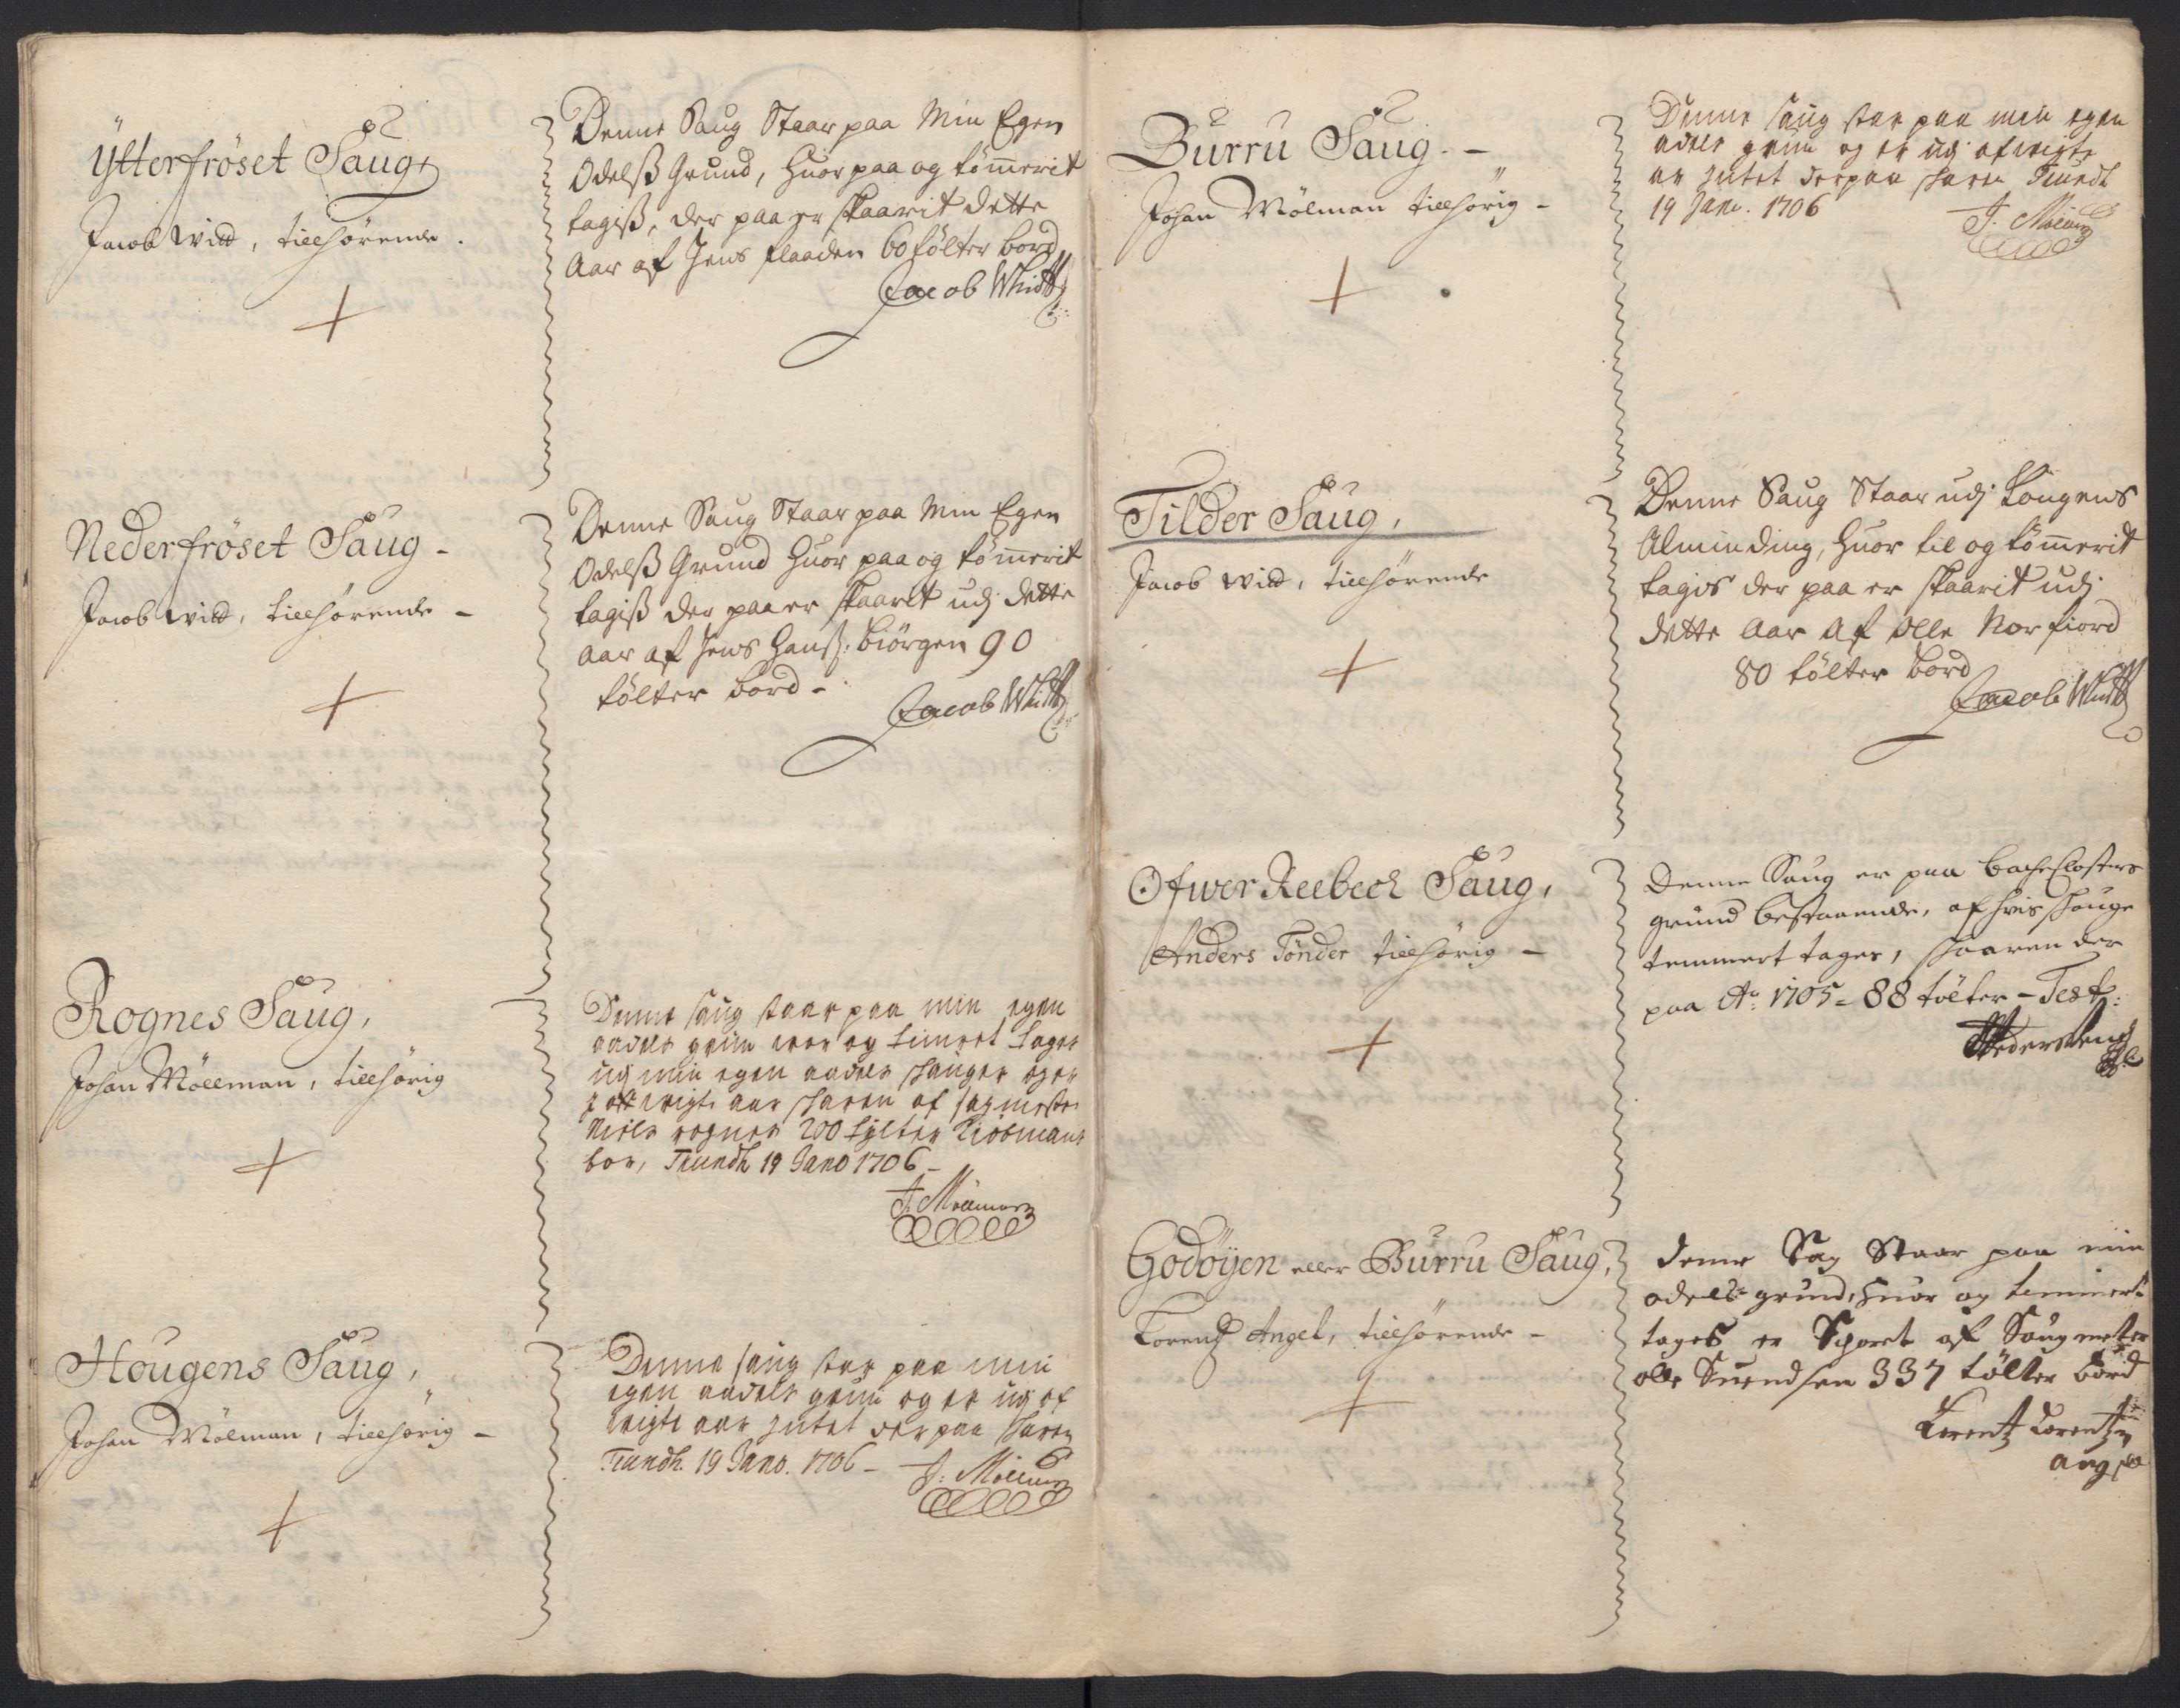 Ÿtterfröset Saug,
Jacob Witd, tillhörende.
Denne Saug Staar paa Min Egen
Odelsß Grund, Huor paa og tömerit
tagiß, der paa er skaarit dette
Aar af Jens flaaden 60 tölter bord
Jacob Whidtt
Nederfröset Saug -
Jacob Witd, tillhörende -
Denne Saug Staar paa Min Egen
Odelsß Grund Huor paa og tömerit
tagiß der paa er skaarit udj dette
aar af Jens Hanß. biörgen 90
tölter bord -
Jacob Whidtt
Rognes Saug,
Johan Möllman, tillhörig
Denne saug staar paa min egen
aadels grun hvor og timret tages
udj min egen aadels skauger og er
skaren af sagmester
Niels rognes 200 tylter Kiobmans
bor, Trundh 19 Jano 1706 -
J. Möllman
Hougens Saug,
Johan Mölman, tillhörig -
Denne saug star paa min
egen aadels grun og er udj af
vigte aar intet der paa skaren
Trundh. 19 Jano. 1706 -
J: Möllman
Burru Saug. -
Johan Mölman tillhörig -
Denne saug star paa min egen
adels grun og er udj afvigte
ar intet derpaa skaren Trundh
19 Jano. 1706
J. Möllman
Tilder Saug,
Jacob Witd, tillhörende
Denne Saug Staar udj Kongens
Alminding, Huor til og tömerit
tages der paa er skaarit udj
dette Aar Af Olle Nor fiord
80 tölter bord
Jacob Whidtt
Ofwer Reebeck Saug,
Anders Tönder tillhörig -
Denne Saug er paa bache Closters
grund bestaaende, af hvis skouge
temmert tages, skaaren der
paa Ao. 1705 = 88 tölter - Test:
Godöÿen eller Burru Saug,
Lorentz Angel, tillhörende -
denne Sag Staar paa min
odels grund, huor og temmert
tages er Skoret af Saug mester
olle Suendsen 337 tölter bord
Lorentz Lorentzn
Angell